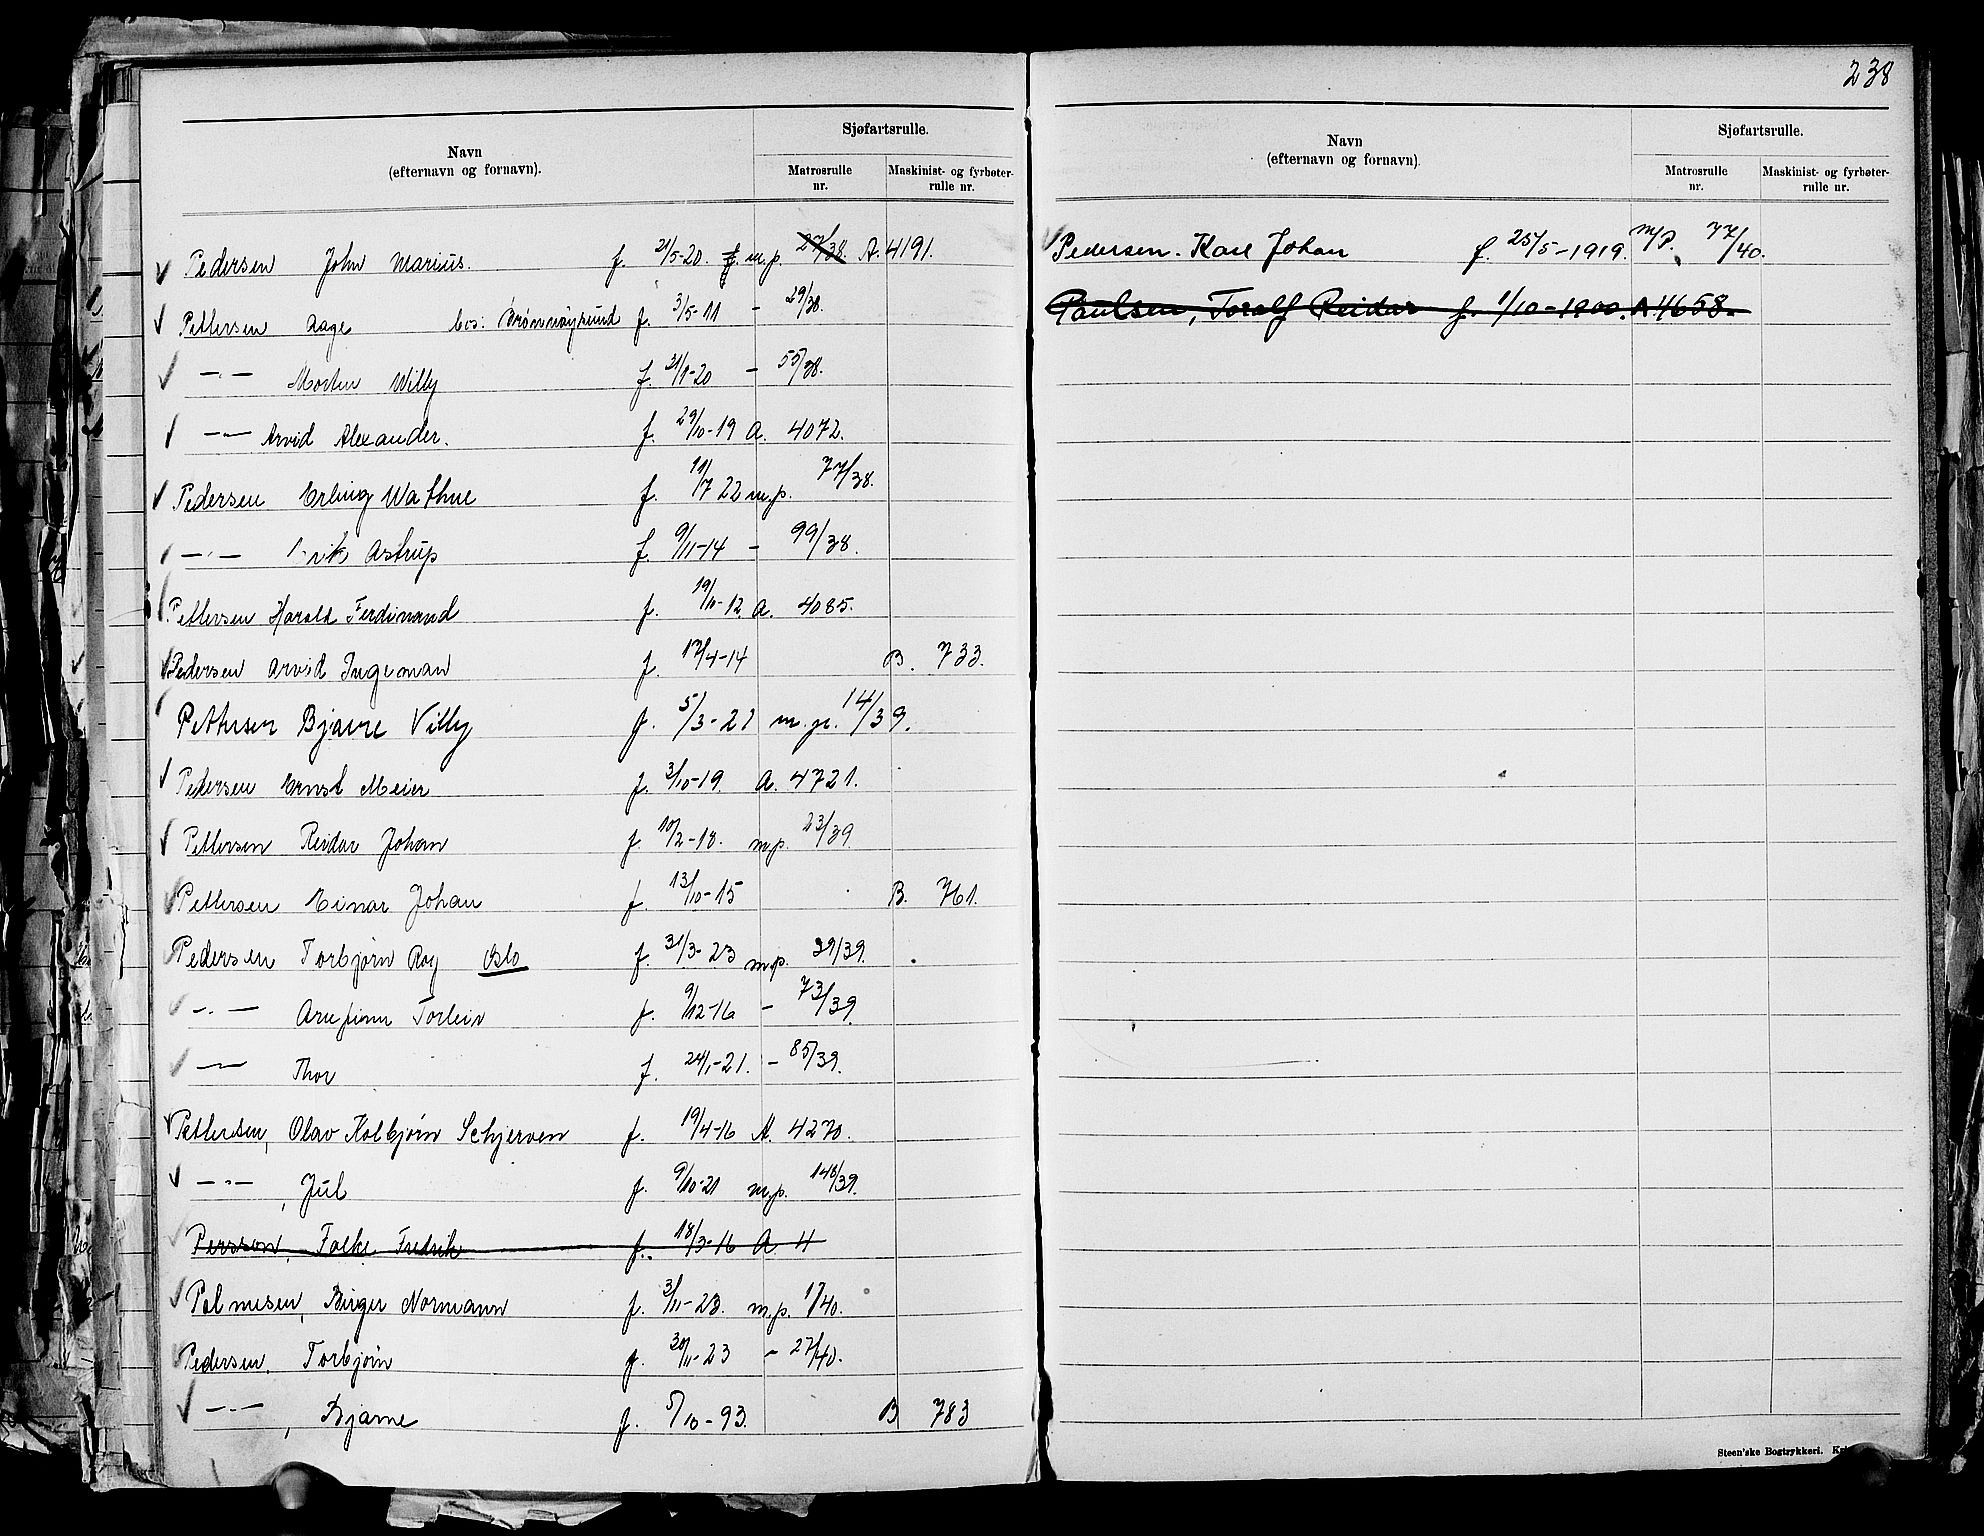 238
Navn
(efternavn og fornavn).
Sjøfartsrulle.
Matrosrulle
nr.
Maskinist- og fyrbøter-
rulle nr.
Pedersen John Marius. f. 21/5-20. f. m.p. 27/38. A. 4191.
Pettersen Aage bos: Brønnøysund f. 3/5-11 - 29/38.
—"— Morten Willy f. 31/1-20 - 55/38.
—"— Arvid Alexander. f. 29/10-19 A. 4072.
Pedersen Erling Wathne f. 11/7 22 m.p. 77/38.
—"— Erik Astrup f. 9/11-14 - 99/38.
Pettersen Harald Ferdinand f. 19/10-12. A. 4085.
Pedersen Arvid Ingeman f. 17/4-14 B. 733.
Pettersen Bjarne Villy f. 5/3-21 m.p. 14/39.
Pedersen Ernst Meier f. 3/10-19. A. 4721.
Pettersen Reidar Johan f. 10/2-18. m.p. 23/39.
Pettersen Einar Johan f. 13/10-15 B. 761.
Pedersen Torbjørn Roy Oslo f. 31/3-23 m.p. 39/39.
—"— Arne Finn Torleiv f. 9/12-16 - 73/39.
—"— Thor f. 24/1-21. - 85/39.
Pettersen, Olav Kolbjørn Schjerven f. 19/4-16 A. 4270.
—"— , Jul f. 9/10-21 m.p. 148/39.
Persson, Folke Fredrik f. 18/3-16 A. 11
Palmesen, Birger Normann f. 3/11-23. m.p. 17/40.
Pedersen, Torbjørn f. 30/11-23 - 27/40.
—"— , Bjarne f. 5/10-93. B 783
Navn
(efternavn og fornavn).
Sjøfartsrulle.
Matrosrulle
nr.
Maskinist- og fyrbøter-
rulle nr.
Pedersen. Karl Johan f. 25/5-1919. m/p. 77/40.
Paulsen, Toralf Reidar f. 1/10-1900. A 4658.
Steen'ske Bogtrykkeri.